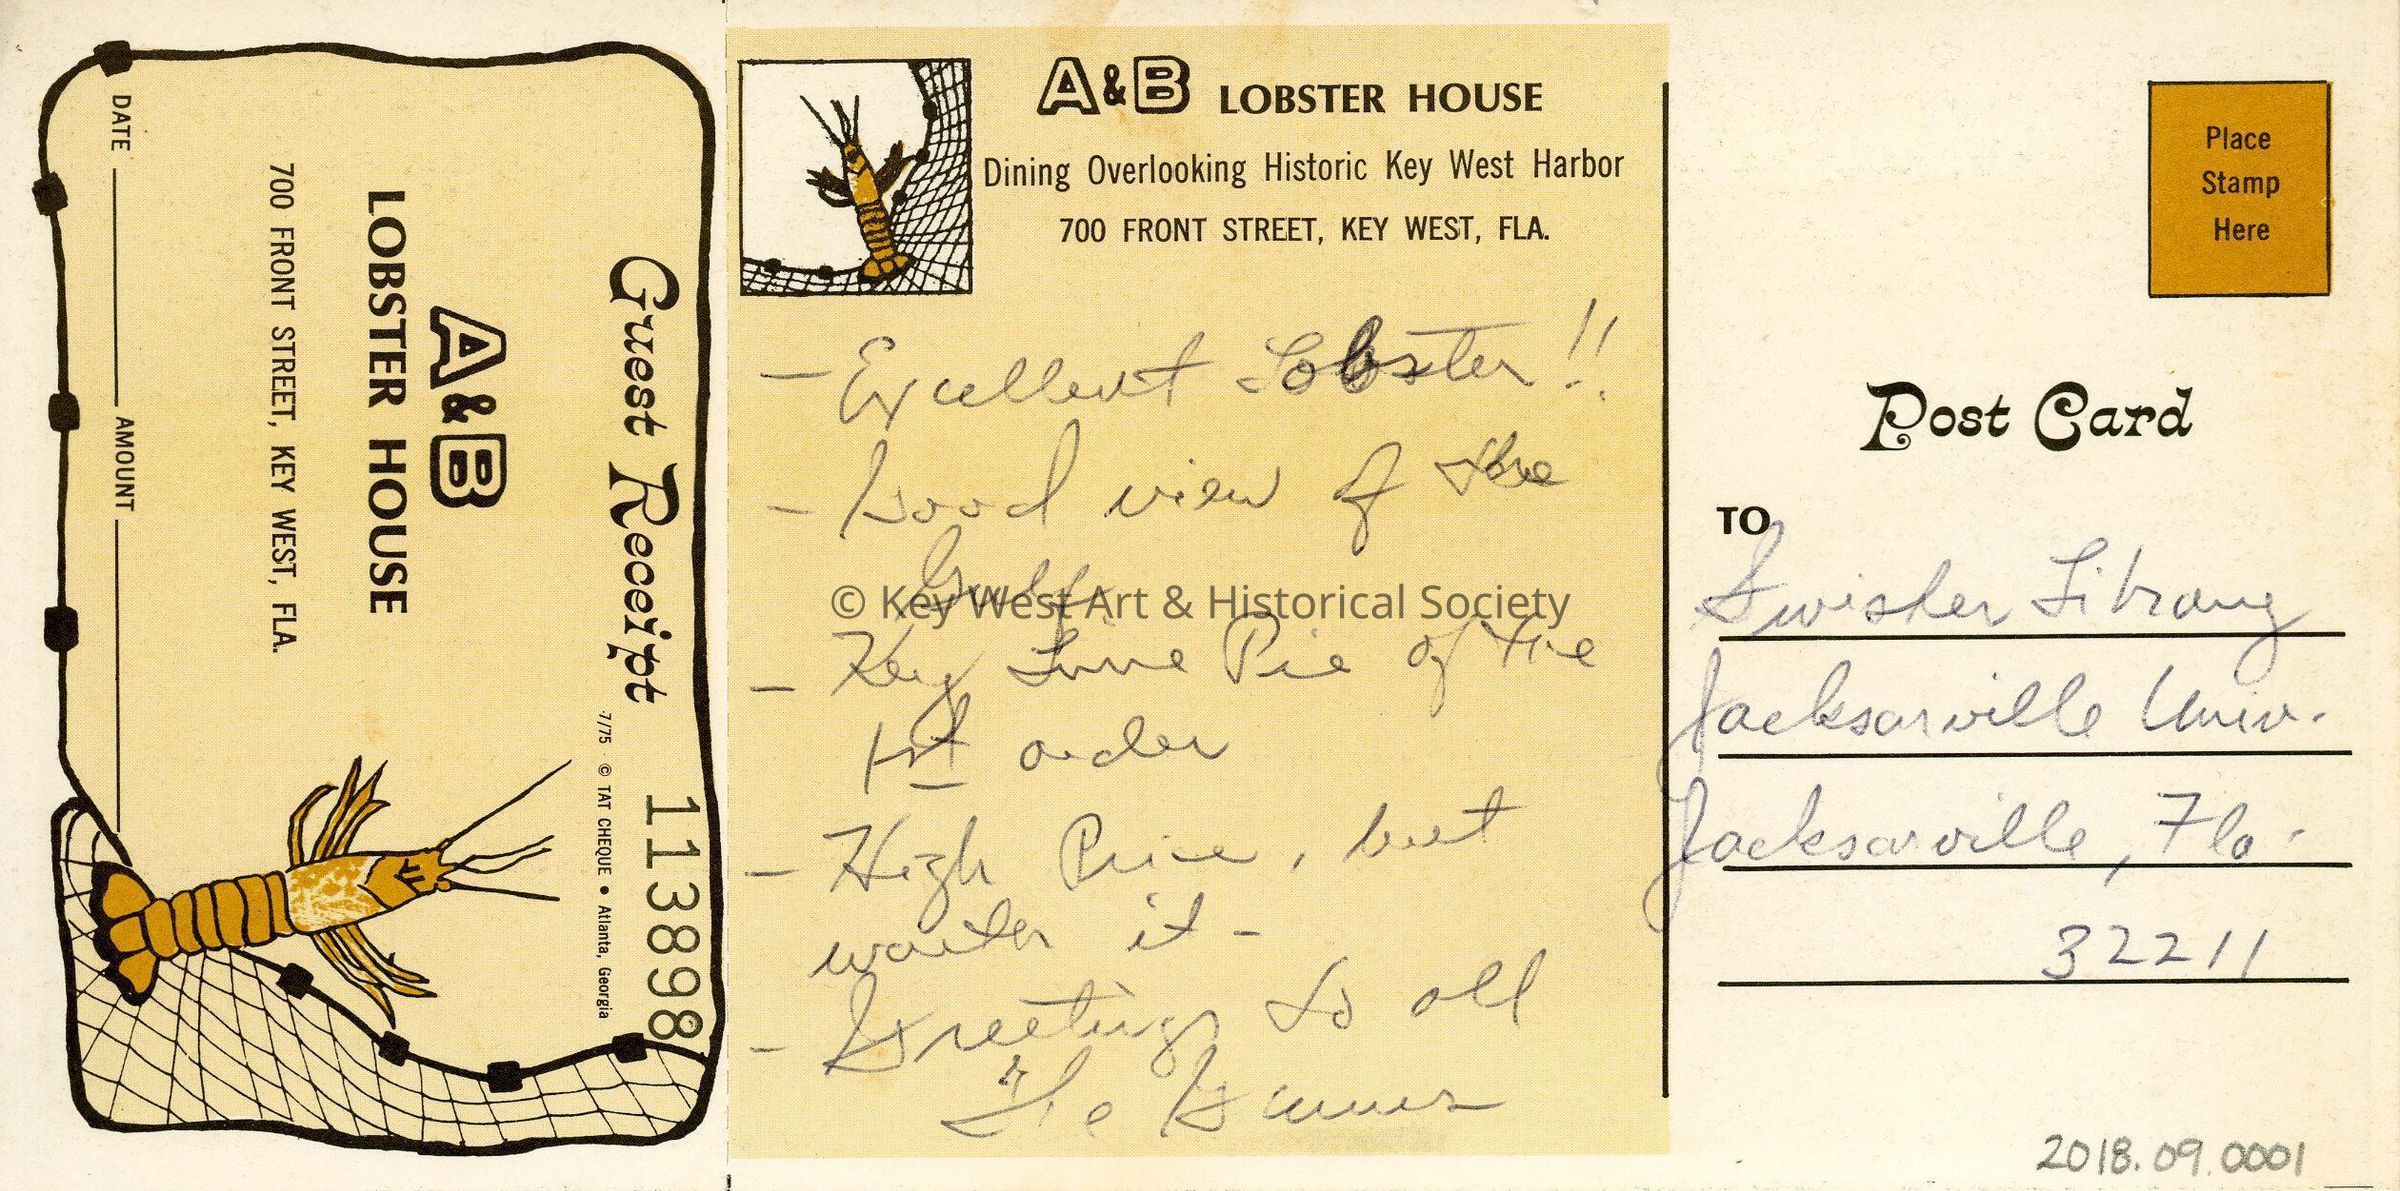 Guest Receipt
113898
7/75 © TAT CHEQUE • Atlanta, Georgia
A&B
LOBSTER HOUSE
700 FRONT STREET, KEY WEST, FLA.
DATE AMOUNT
A&B LOBSTER HOUSE
Dining Overlooking Historic Key West Harbor
700 FRONT STREET, KEY WEST, FLA.
- Excellent Lobster!!
- Good view of the
Gulf
- Key Lime Pie of the
1st order
- High Price, but
worth it -
- Greetings to all
The
© Key West Art & Historical Society
Place
Stamp
Here
Post Card
TO
Swisher Library
Jacksonville Univ.
Jacksonville, Fla.
32211
2018.09.0001